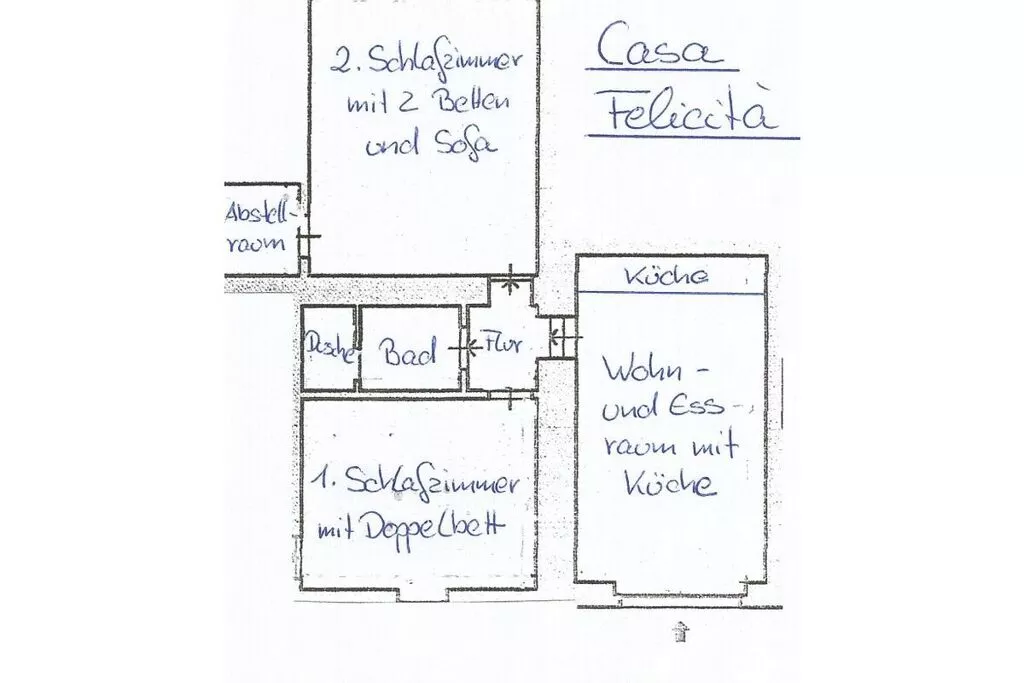 Casa
Felicità
2. Schlafzimmer
mit 2 Betten
und Sofa
Abstell-
raum
Küche
Dusche
Bad
Flur
Wohn-
und Ess-
raum mit
Küche
1. Schlafzimmer
mit Doppelbett